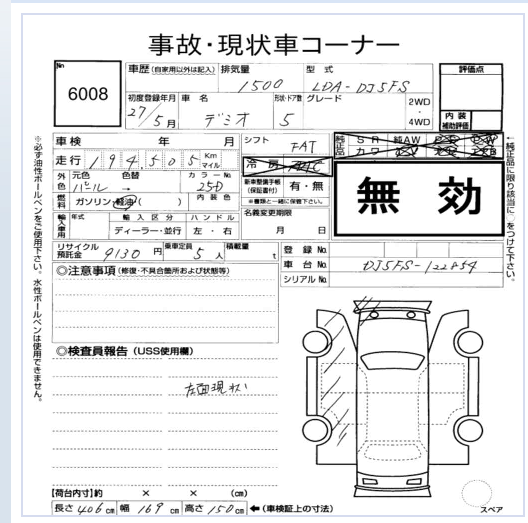 事故・現状車コーナー
No 6008
車歴(自家用以外は記入) 排気量 1500 型式 LDA-DJ5FS
評価点
初度登録年月 27/5月 車名 デミオ 形状・ドア数 5 グレード 2WD・4WD
内装補助評価
車検 年 月 シフト FAT
純正品 SR 純AW PS PW カワ
走行 194,505 Km マイル 冷房 AC
外色 元色 パール 色替 → カラーNo. 25D
新車整備手帳(保証書付) 有・無
※書類と一緒に保管下さい。
燃料 ガソリン・軽油( ) 内装色
無効
輸入車用 年式 輸入区分 ディーラー・並行 ハンドル 左・右
名義変更期限 月 日
リサイクル預託金 9130円 乗車定員 5人 積載量 t
登録No.
車台No. DJ5FS-122854
シリアルNo.
◎注意事項(修復・不具合箇所および状態等)
◎検査員報告(USS使用欄)
左面現状
【荷台内寸】約 × × (cm)
長さ406cm 幅169cm 高さ150cm ←(車検証上の寸法)
スペア
※必ず油性ボールペンをご使用下さい。水性ボールペンは使用できません。
←純正品に限り該当に○をつけて下さい。